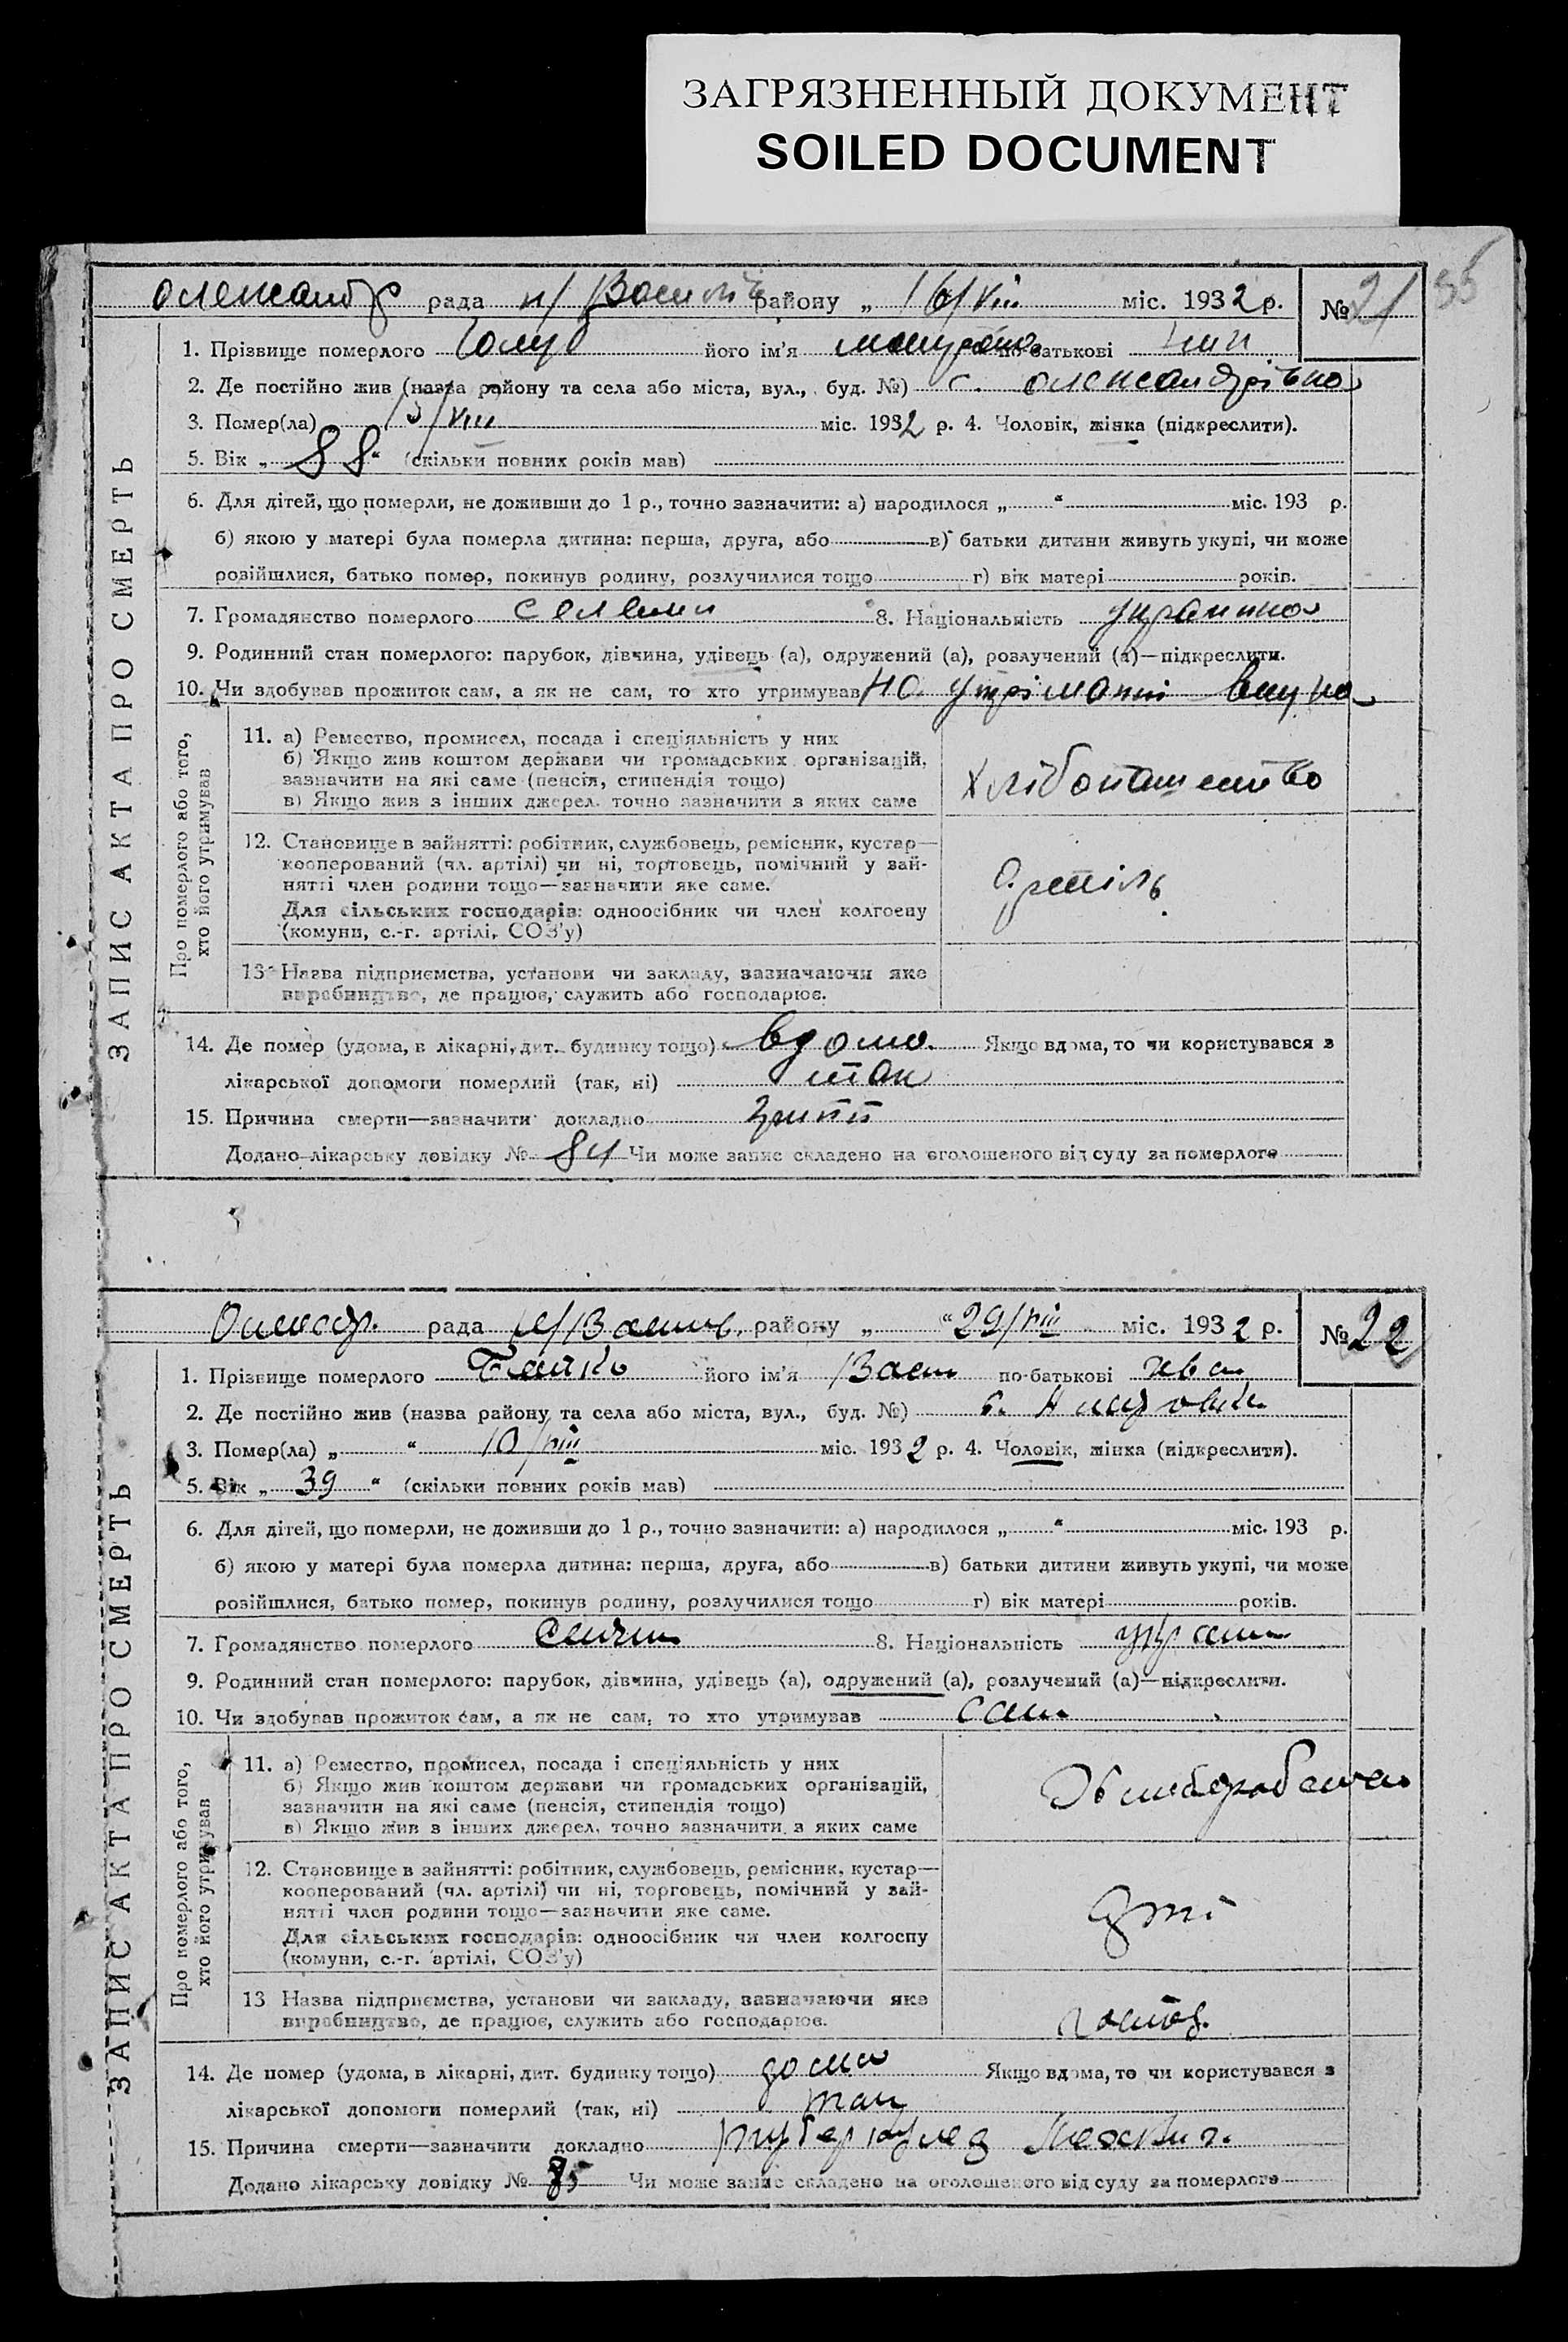 ЗАГРЯЗНЕННЫЙ ДОКУМЕНТ
SOILED DOCUMENT
35
Олександр рада н/Василів району „ 16/VIII міс. 1932 р. № 21
1. Прізвище померлого Голуб його ім'я по-батькові
2. Де постійно жив (назва району та села або міста, вул., буд. №) с. Олександрівка
3. Помер(ла) „ 15/VIII міс. 1932 р. 4. Чоловік, жінка (підкреслити).
5. Вік „ 88 “ (скільки повних років мав)
6. Для дітей, що померли, не доживши до 1 р., точно зазначити: а) народилося „ “ міс. 193 р.
б) якою у матері була померла дитина: перша, друга, або в) батьки дитини живуть укупі, чи може
розійшлися, батько помер, покинув родину, розлучилися тощо г) вік матері років.
7. Громадянство померлого 8. Національність українка
9. Родинний стан померлого: парубок, дівчина, удівець (а), одружений (а), розлучений (а)—підкреслити.
10. Чи здобував прожиток сам, а як не сам, то хто утримував на утріманні внука
Про померлого або того,
хто його утримував
11. а) Ремество, промисел, посада і спеціяльність у них
б) Якщо жив коштом держави чи громадських організацій,
зазначити на які саме (пенсія, стипендія тощо)
в) Якщо жив з інших джерел, точно зазначити з яких саме
хлібопашество
12. Становище в зайнятті: робітник, службовець, ремісник, кустар—
кооперований (чл. артілі) чи ні, торговець, помічний у зай-
нятті член родини тощо—зазначити яке саме.
Для сільських господарів: одноосібник чи член колгоспу
(комуни, с.-г. артілі, СОЗ'у)
Артіль
13 Назва підприємства, установи чи закладу, зазначаючи яке
виробництво, де працює, служить або господарює.
14. Де помер (удома, в лікарні, дит. будинку тощо) вдома Якщо вдома, то чи користувався з
лікарської допомоги померлий (так, ні) так
15. Причина смерти—зазначити докладно грипп
Додано лікарську довідку № 84 Чи може запис складено на оголошеного від суду за померлого
ЗАПИС АКТА ПРО СМЕРТЬ
Олександр. рада н/Василів. району „ “ 29/VIII міс. 1932 р. № 22
1. Прізвище померлого його ім'я Васил по-батькові Іван
2. Де постійно жив (назва району та села або міста, вул., буд. №) с.
3. Помер(ла) „ “ 10/VIII міс. 1932 р. 4. Чоловік, жінка (підкреслити).
5. Вік „ 39 “ (скільки повних років мав)
6. Для дітей, що померли, не доживши до 1 р., точно зазначити: а) народилося „ “ міс. 193 р.
б) якою у матері була померла дитина: перша, друга, або в) батьки дитини живуть укупі, чи може
розійшлися, батько помер, покинув родину, розлучилися тощо г) вік матері років.
7. Громадянство померлого 8. Національність
9. Родинний стан померлого: парубок, дівчина, удівець (а), одружений (а), розлучений (а)—підкреслити.
10. Чи здобував прожиток сам, а як не сам, то хто утримував сам
Про померлого або того,
хто його утримував
11. а) Ремество, промисел, посада і спеціяльність у них
б) Якщо жив коштом держави чи громадських організацій,
зазначити на які саме (пенсія, стипендія тощо)
в) Якщо жив з інших джерел, точно зазначити з яких саме
12. Становище в зайнятті: робітник, службовець, ремісник, кустар—
кооперований (чл. артілі) чи ні, торговець, помічний у зай-
нятті член родини тощо—зазначити яке саме.
Для сільських господарів: одноосібник чи член колгоспу
(комуни, с.-г. артілі, СОЗ'у)
13 Назва підприємства, установи чи закладу, зазначаючи яке
виробництво, де працює, служить або господарює.
господ.
14. Де помер (удома, в лікарні, дит. будинку тощо) дома Якщо вдома, то чи користувався з
лікарської допомоги померлий (так, ні) так
15. Причина смерти—зазначити докладно туберкулез
Додано лікарську довідку № 85 Чи може запис складено на оголошеного від суду за померлого
ЗАПИС АКТА ПРО СМЕРТЬ